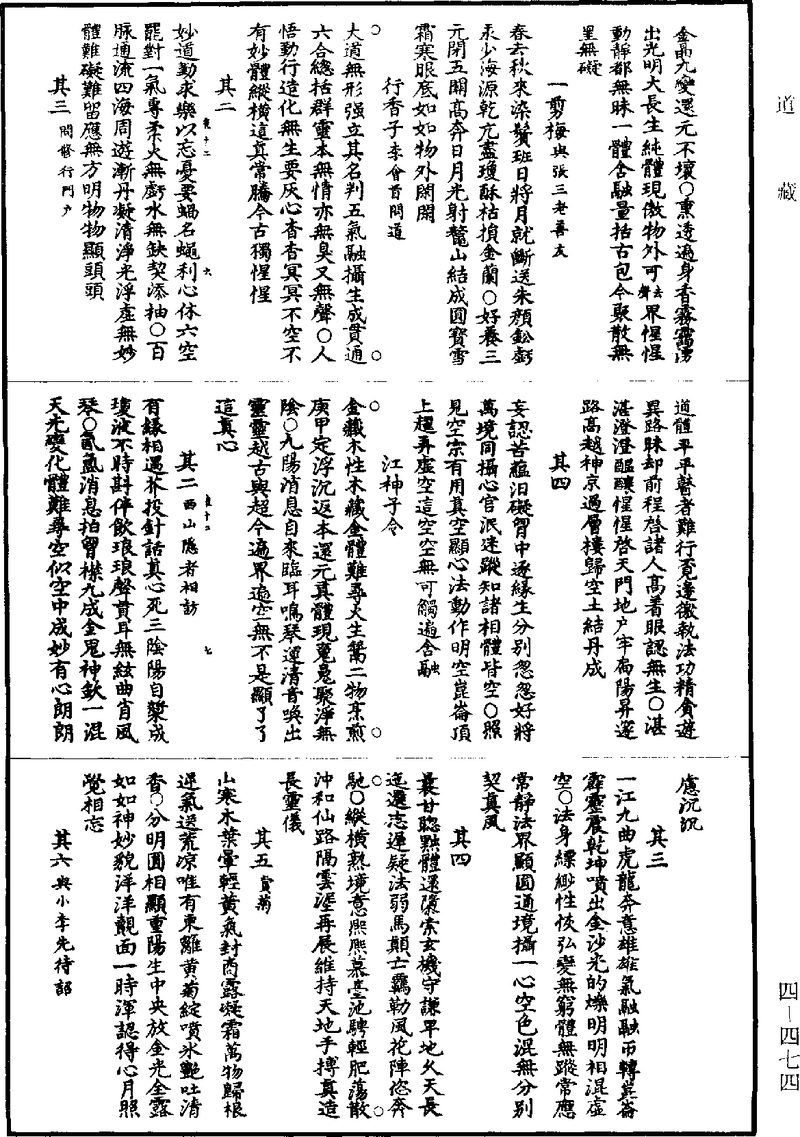 道藏
金晶九變還元不壞○熏透遍身香霧靄湧
出光明大長生純體現傲物外可去聲界惺惺
動靜都無昧一體含融量括古包今聚散無
罣無礙
一剪梅與張三老善友
春去秋來染鬢班日將月就斷送朱顏鉛虧
汞少海源乾亢盡瓊酥枯損金蘭○好養三
元閉五關高奔日月光射鰲山結成圓寶雪
霜寒眼底如如物外閑閑
行香子李會首問道
大道無形强立其名判五氣融攝生成貫通
六合總括群靈本無情亦無臭又無聲○人
悟勤行造化無生要灰心杳杳冥冥不空不
有妙體縱橫這真常騰今古獨惺惺
其二
妙道勤求樂以忘憂要蝸名蠅利心休六空
罷對一氣專柔火無虧水無缺契添抽○百
脉通流四海周遊漸丹凝清淨光浮虛無妙
體難礙難留應無方明物物顯頭頭
其三問修行門户
道體平平瞽者難行覓邊徼執法功精貪遊
異路昧却前程啓諸人高着眼認無生○湛
湛澄澄醞釀惺惺啓天門地户牢扃陽昇邃
路高越神京過層樓歸空土結丹成
其四
妄認苦蘊汨礙胷中逐緣生分别忽忽好將
萬境同攝心官泯迷蹤知諸相體皆空○照
見空宗有用真空顯心法動作明空崑崙頂
上趯弄虛空這空空無可觸遍含融
江神子令
金藏木性木藏金體難尋火生鶩二物烹煎
庚甲定浮沉返本還元真體現魔鬼聚淨無
陰○九陽消息自來臨耳鳴琴運清音喚出
靈靈越古與超今遍界遍空無不是顯了了
這真心
其二西山隱者相訪
有緣相遇芥投針話真心死三陰陽自槳成
瓊液不時斟伴飲琅琅聲貫耳無絃曲肯風
琴○氤氲消息拍胷襟九成金鬼神欽一混
天光變化體難尋空似空中成妙有心朗朗
慮沉沉
其三
一江九曲虎龍奔意雄雄氣融融帀轉崑崙
霹靂震乾坤噴出金沙光的爍明明相混虛
空○法身縹緲性恢弘變無窮體無蹤常應
常靜法界顯圓通境攝一心空色混無分别
契真風
其四
最甘聦黜體還藁索玄機守謙卑地久天長
迤邐志遲疑法弱馬顛亡羈勒風花陣恣奔
馳○縱橫熟境意熙熙慕臺池騁輕肥蕩散
沖和仙路隔雲涯再展維持天地手摶真造
長靈儀
其五賞菊
山寒木葉暈輕黄氣封商露凝霜萬物歸根
逆氣送荒凉唯有東籬黄菊綻噴氷艷吐清
香○分明圓相顯重陽生中央放金光全露
如如神妙貌洋洋覿面一時渾認得心月照
覺相忘
其六與小李先待詔
四—四七四